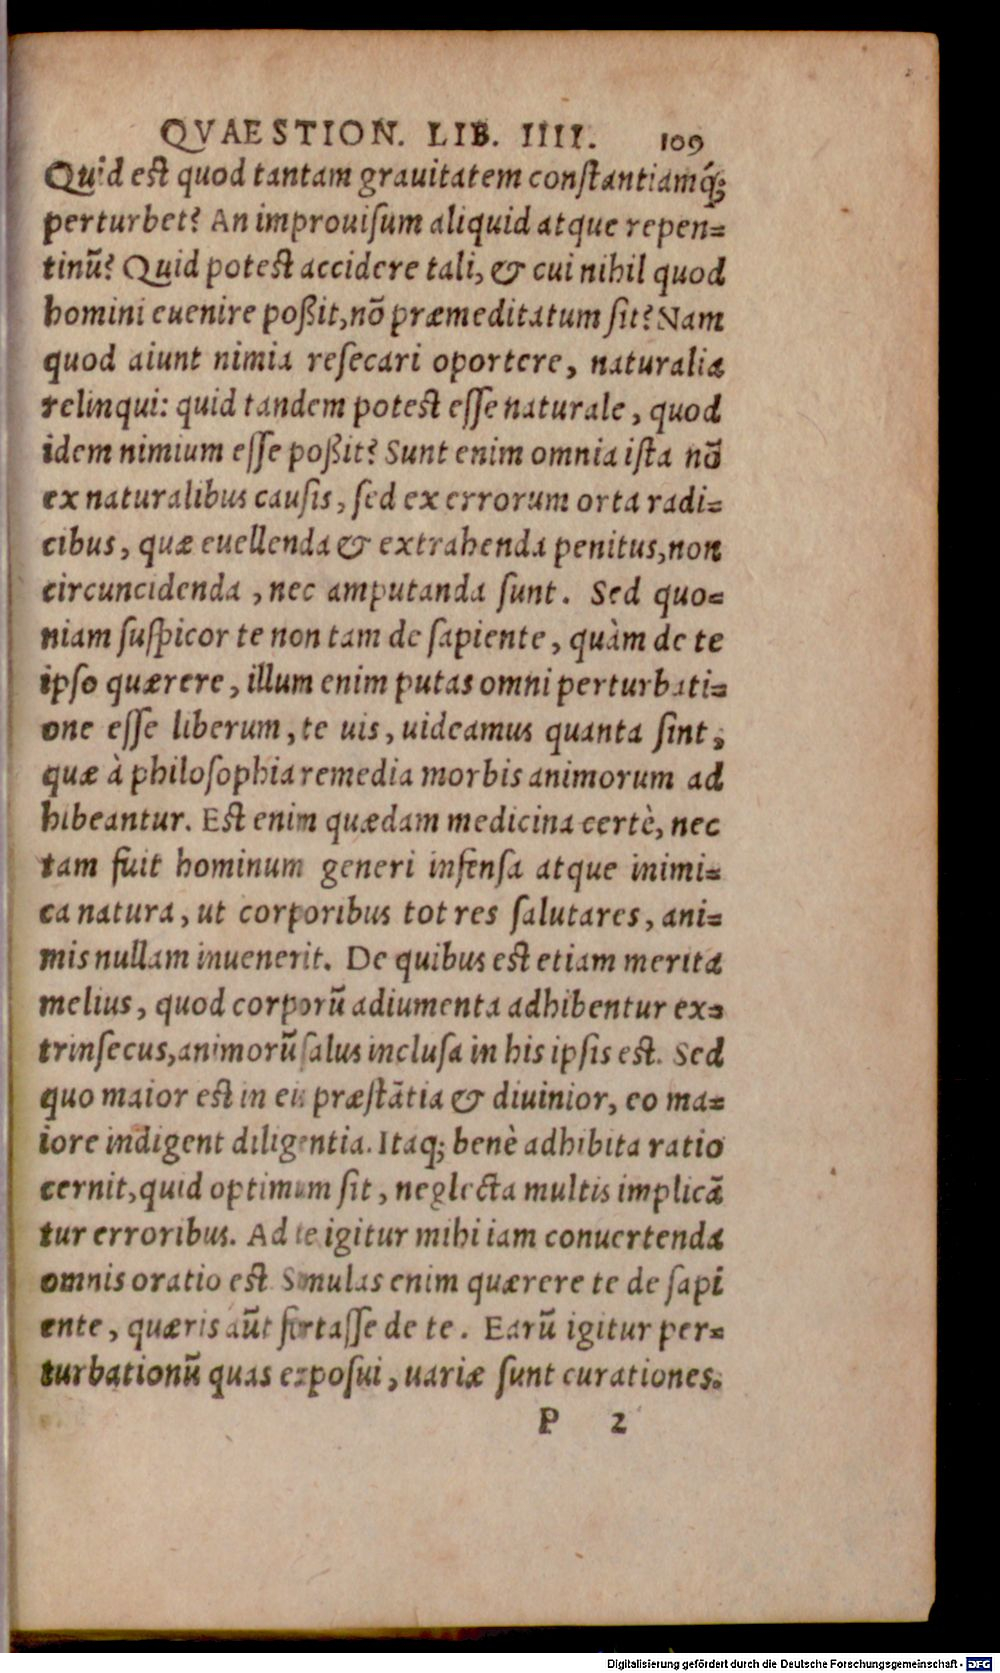 QVAESTION. LIB. IIII. 109
Quid est quod tantam grauitatem constantiamq́;
perturbet? An improuisum aliquid atque repen=
tinũ? Quid potest accidere tali, & cui nihil quod
homini euenire poßit, nõ præmeditatum sit? Nam
quod aiunt nimia resecari oportere, naturalia
relinqui: quid tandem potest esse naturale, quod
idem nimium esse poßit? Sunt enim omnia ista nõ
ex naturalibus causis, sed ex errorum orta radi=
cibus, quæ euellenda & extrahenda penitus, non
circuncidenda, nec amputanda sunt. Sed quo=
niam suspicor te non tam de sapiente, quàm de te
ipso quærere, illum enim putas omni perturbati=
one esse liberum, te uis, uideamus quanta sint,
quæ à philosophia remedia morbis animorum ad
hibeantur. Est enim quædam medicina certè, nec
tam fuit hominum generi infensa atque inimi=
ca natura, ut corporibus tot res salutares, ani=
mis nullam inuenerit. De quibus est etiam merita
melius, quod corporũ adiumenta adhibentur ex=
trinsecus, animorũ salus inclusa in his ipsis est. Sed
quo maior est in eis præstãtia & diuinior, eo ma=
iore indigent diligentia. Itaq; benè adhibita ratio
cernit, quid optimum sit, neglecta multis implicã
tur erroribus. Ad te igitur mihi iam conuertenda
omnis oratio est. Simulas enim quærere te de sapi
ente, quæris aũt fortasse de te. Earũ igitur per=
turbationũ quas exposui, uariæ sunt curationes.
P 2
Digitalisierung gefördert durch die Deutsche Forschungsgemeinschaft - DFG